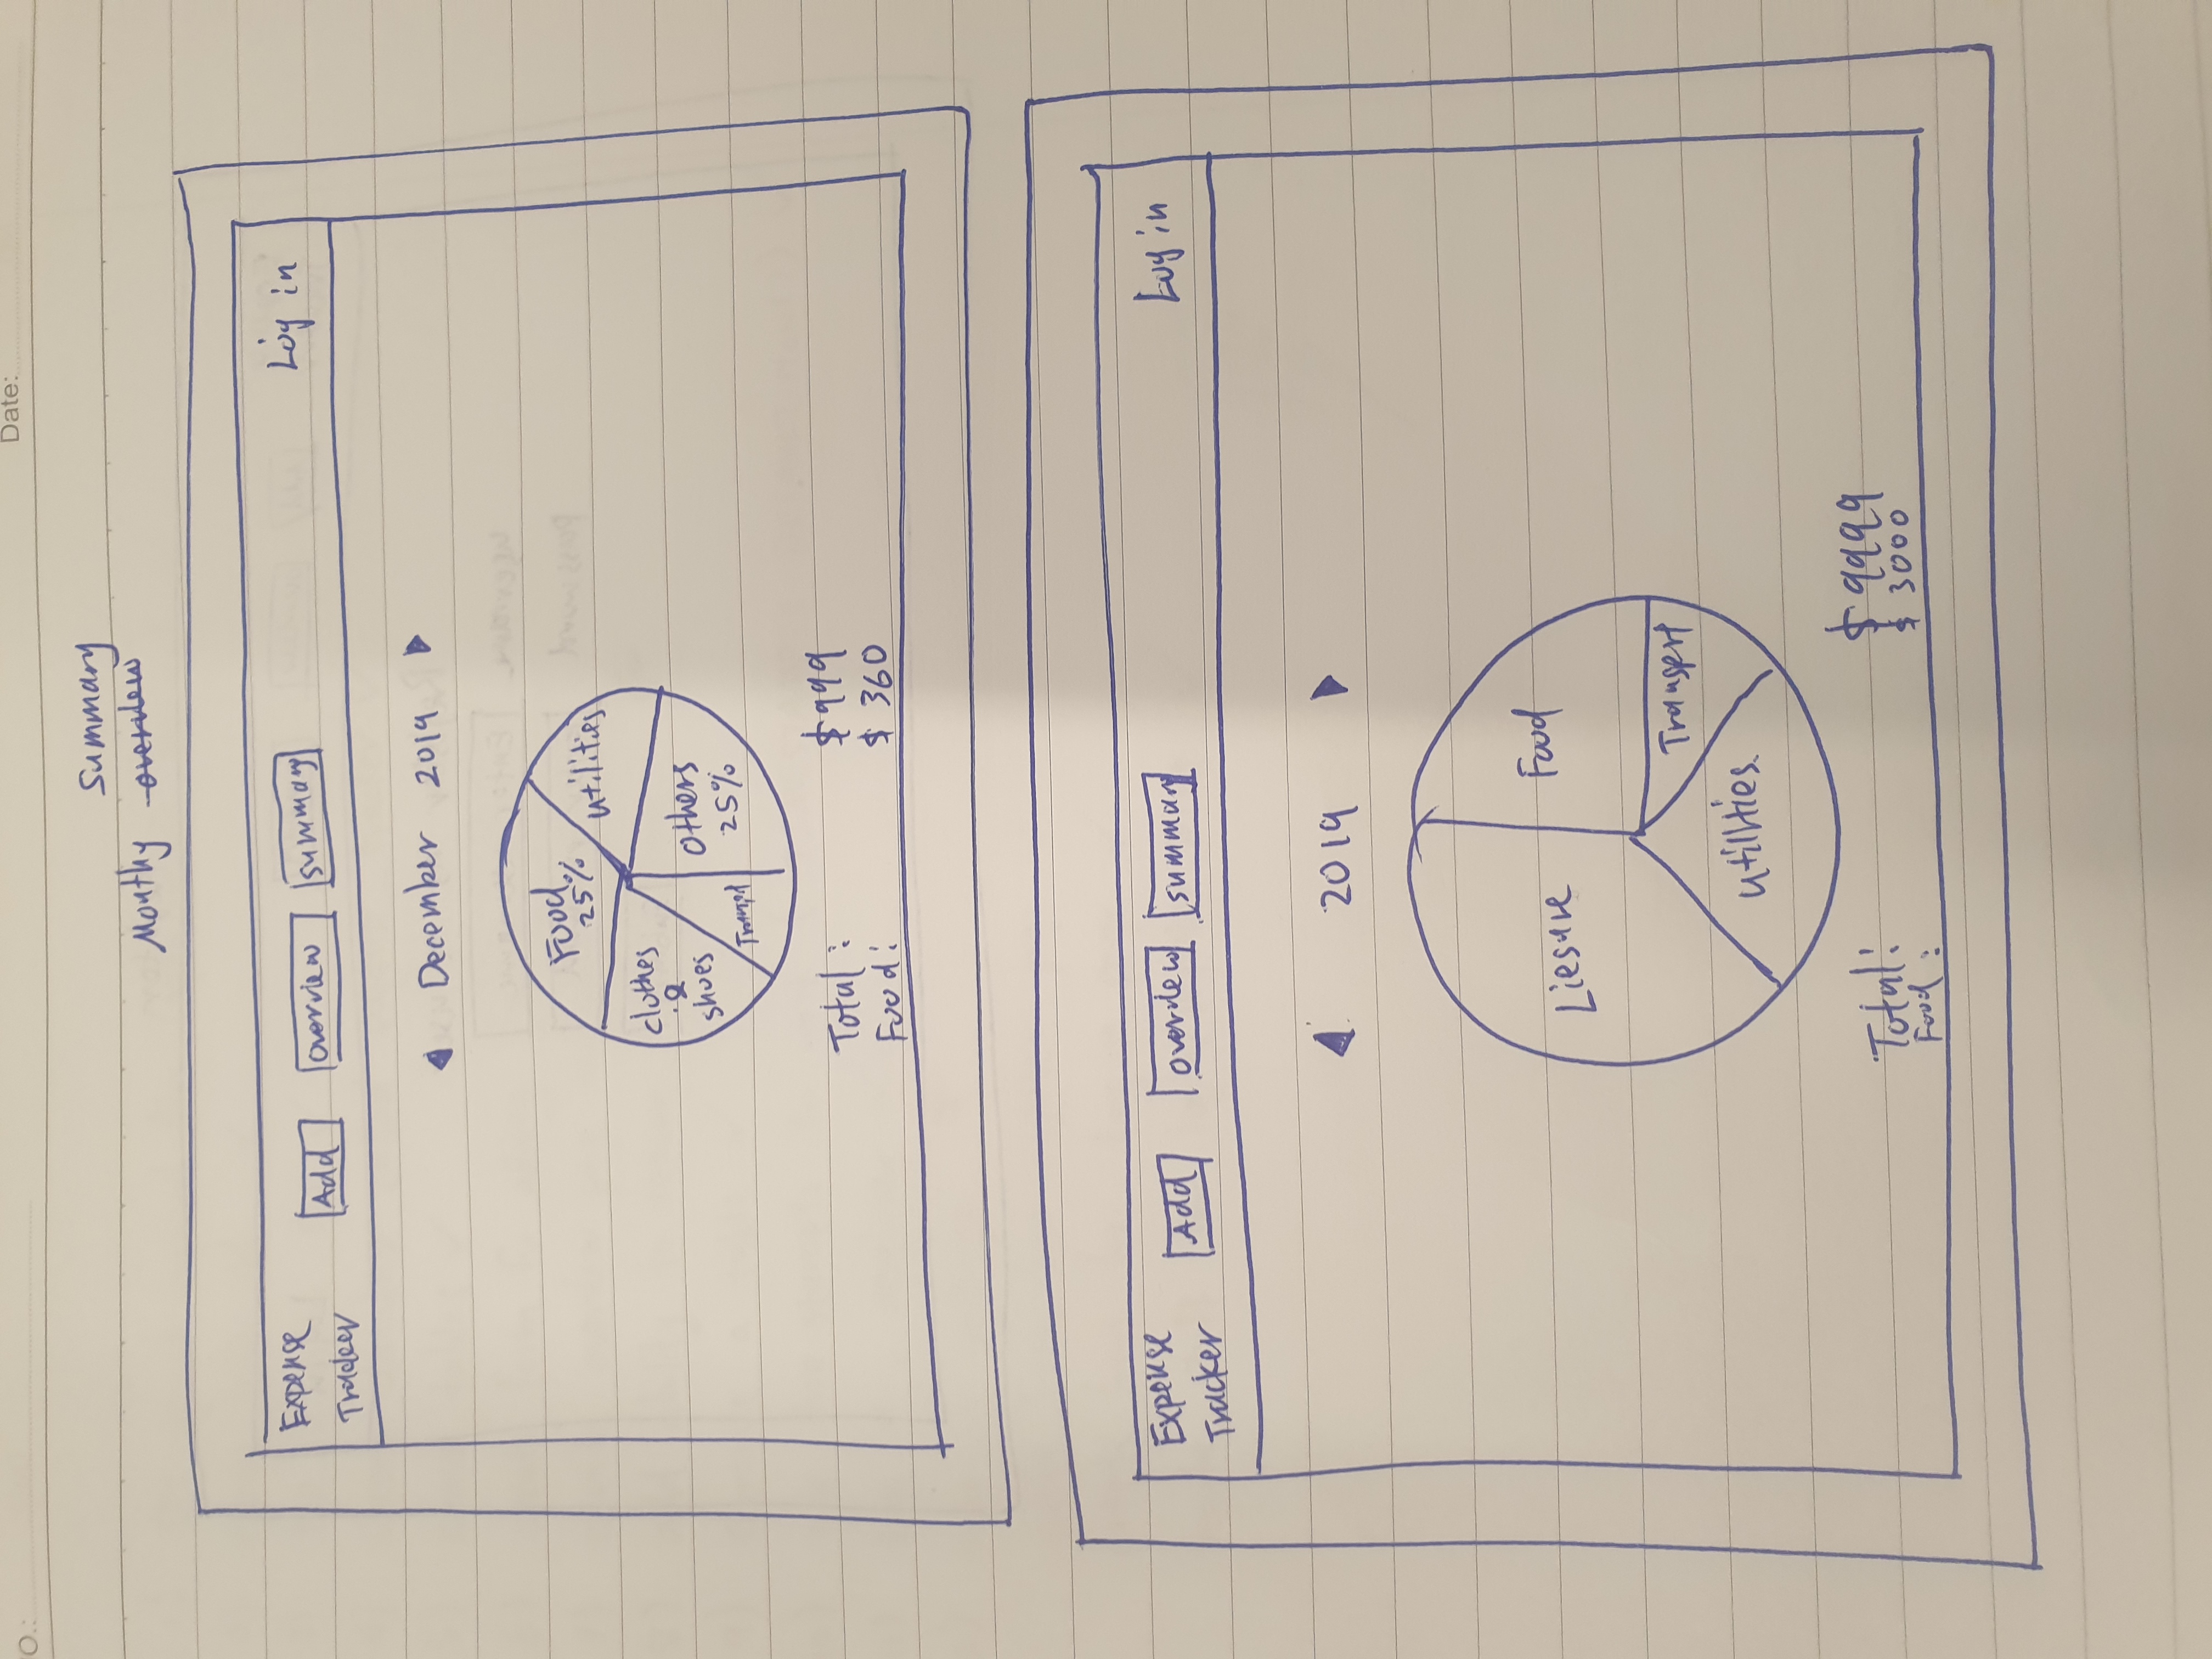 O.:
Date:
Summary
Monthy overview
Expense
Tracker
Add
overview
summary
Log in
December 2019
Food
25%
utilities
clothes
&
shoes
Transpt
others
25%
Total : $ 999
Food : $ 360
Expense
Tracker
Add
overview
summary
Log in
2019
Liesure
Food
Transport
utilities
Total : $ 9999
Food : $ 3000